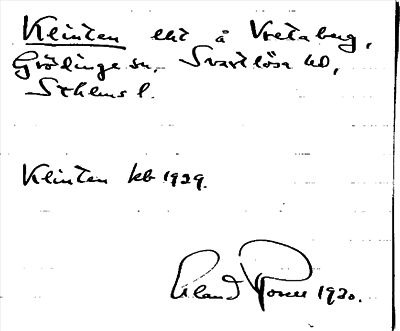 Klinten lht å Vretaberg,
Grödinge sn, Svartlösa hd,
Sthlms l.
Klinten kb 1929.
Roland 1930.